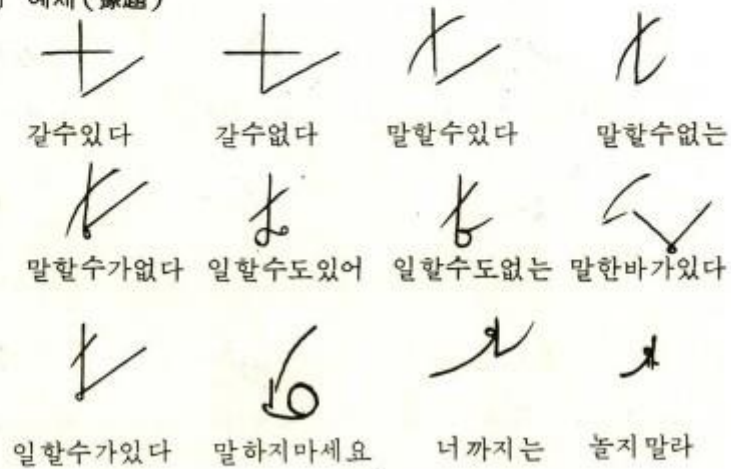 예제(豫題)
갈수있다 갈수없다 말할수있다 말할수없는
말할수가없다 일할수도있어 일할수도없는 말한바가있다
일할수가있다 말하지마세요 너까지는 놀지말라